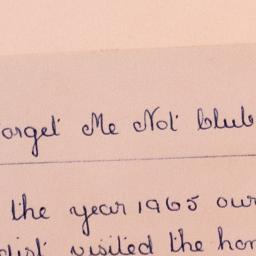 orget Me Not Club
the year 1965 our
dist visited the hom